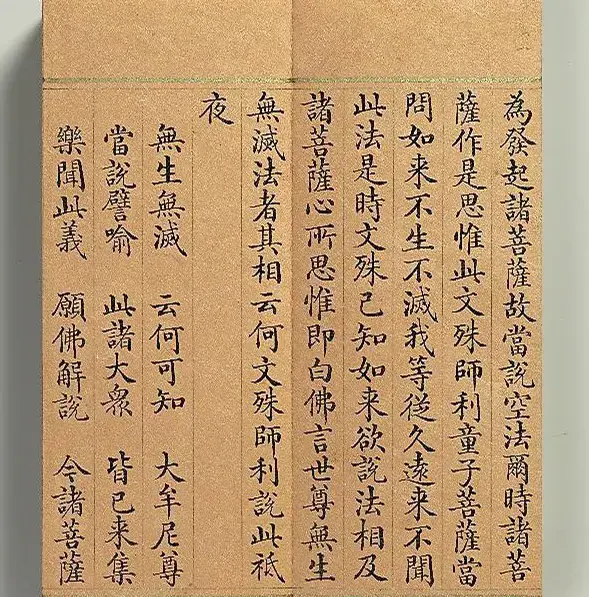 為發起諸菩薩故當說空法爾時諸菩
薩作是思惟此文殊師利童子菩薩當
問如来不生不滅我等從久遠来不聞
此法是時文殊已知如来欲說法相及
諸菩薩心所思惟即白佛言世尊無生
無滅法者其相云何文殊師利說此祇
夜
無生無滅 云何可知 大牟尼尊
當說譬喻 此諸大眾 皆已来集
樂聞此義 願佛解說 今諸菩薩